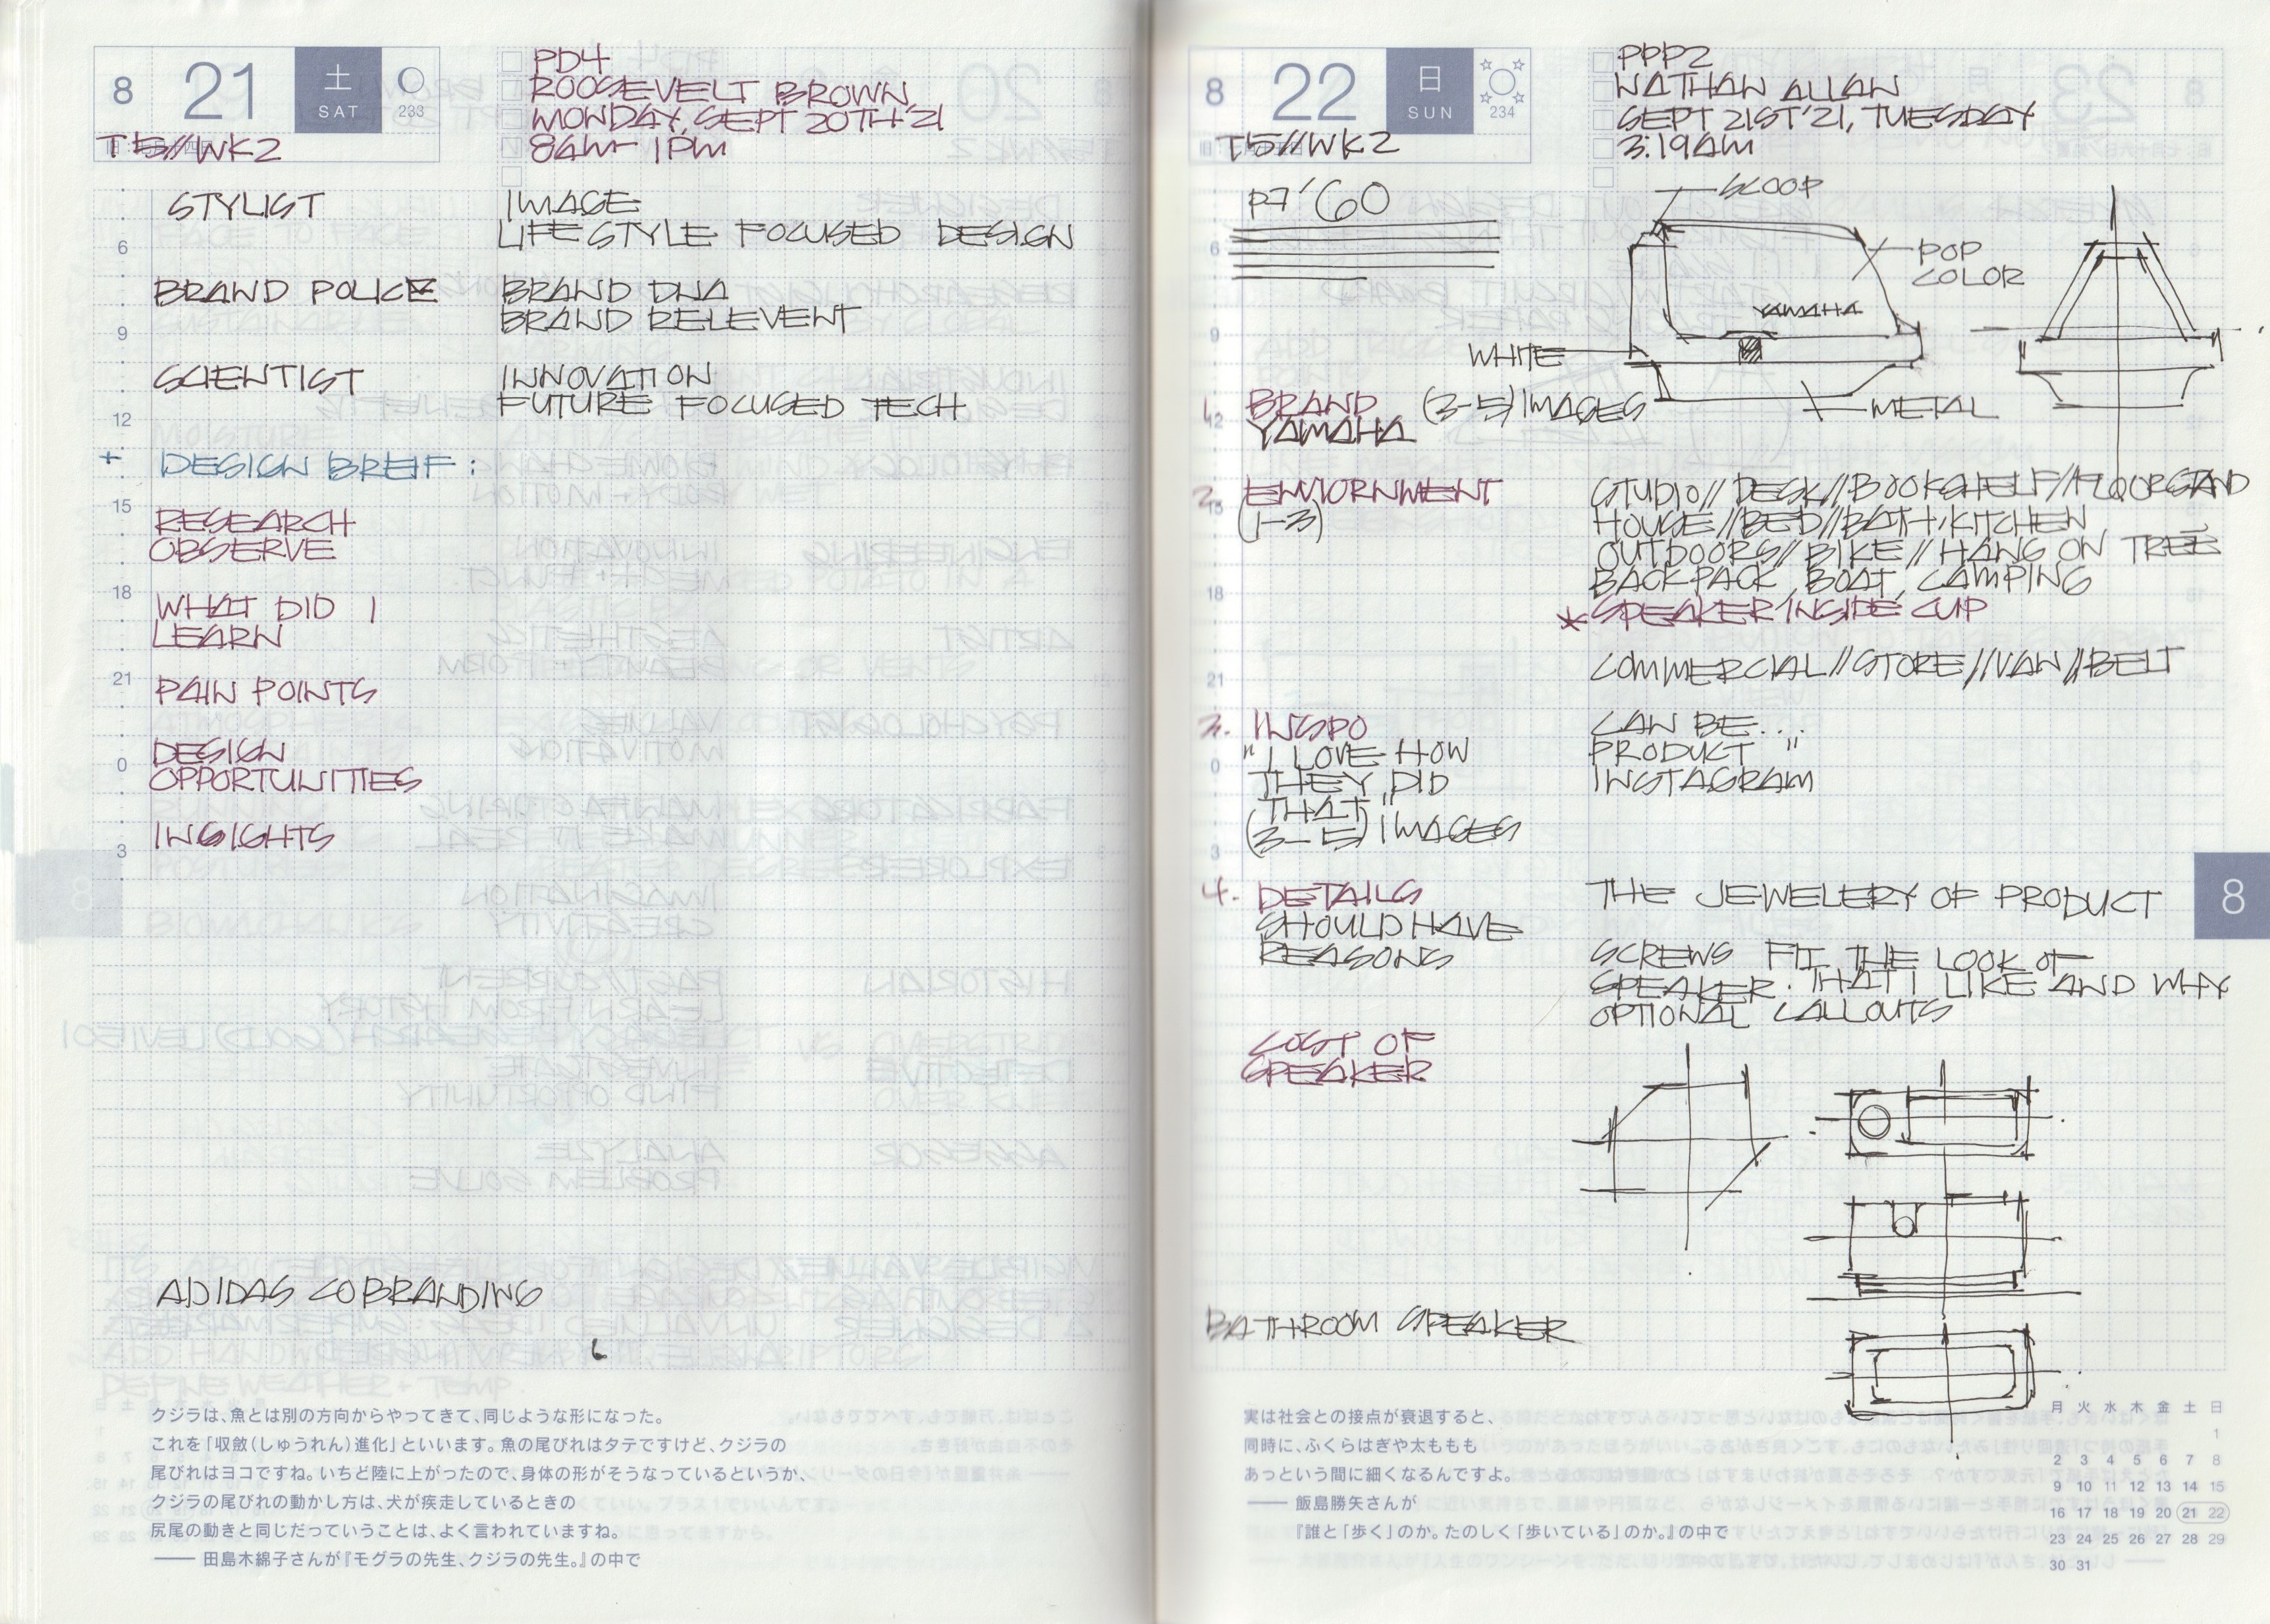 8 21 土 SAT 233
T5//WK2
PD4
ROOSEVELT BROWN
MONDAY, SEPT 20TH '21
8AM- 1PM
STYLIST
IMAGE
LIFESTYLE FOCUSED DESIGN
6
BRAND POLICE
BRAND DNA
BRAND RELEVENT
9
SCIENTIST
INNOVATION
FUTURE FOCUSED TECH
12
+ DESIGN BREIF:
15
RESEARCH
OBSERVE
18
WHAT DID I
LEARN
21
PAIN POINTS
DESIGN
0
OPPORTUNITIES
INSIGHTS
3
8
ADIDAS COBRANDING
クジラは、魚とは別の方向からやってきて、同じような形になった。
これを「収斂(しゅうれん)進化」といいます。魚の尾びれはタテですけど、クジラの
尾びれはヨコですね。いちど陸に上がったので、身体の形がそうなっているというか、
クジラの尾びれの動かし方は、犬が疾走しているときの
尻尾の動きと同じだっていうことは、よく言われていますね。
── 田島木綿子さんが『モグラの先生、クジラの先生。』の中で
8 22 日 SUN 234
T5//WK2
PPP2
NATHAN ALLAN
SEPT 21ST '21, TUESDAY
3:19AM
P7 '60
SCOOP
POP
COLOR
YAMAHA
WHITE
METAL
6
9
1. BRAND (3-5) IMAGES
YAMAHA
12
2. ENVIORNMENT
(1-3)
15
STUDIO//DESK//BOOKSHELF//FLOORSTAND
HOUSE//BED//BATH/KITCHEN
OUTDOORS//BIKE//HANG ON TREE
BACKPACK, BOAT, CAMPING
18
* SPEAKER INSIDE CUP
COMMERCIAL//STORE//VAN//BELT
21
3. INSPO
"I LOVE HOW
THEY DID
THAT"
(3-5) IMAGES
0
3
CAN BE...
PRODUCT "
INSTAGRAM
4. DETAILS
SHOULD HAVE
REASONS
THE JEWELERY OF PRODUCT
SCREWS FIT THE LOOK OF
SPEAKER. THAT I LIKE AND WHY
OPTIONAL CALLOUTS
8
COST OF
SPEAKER
BATHROOM SPEAKER
実は社会との接点が衰退すると、
同時に、ふくらはぎや太ももも
あっという間に細くなるんですよ。
── 飯島勝矢さんが
『誰と「歩く」のか。たのしく「歩いている」のか。』の中で
月 火 水 木 金 土 日
1
2 3 4 5 6 7 8
9 10 11 12 13 14 15
16 17 18 19 20 21 22
23 24 25 26 27 28 29
30 31